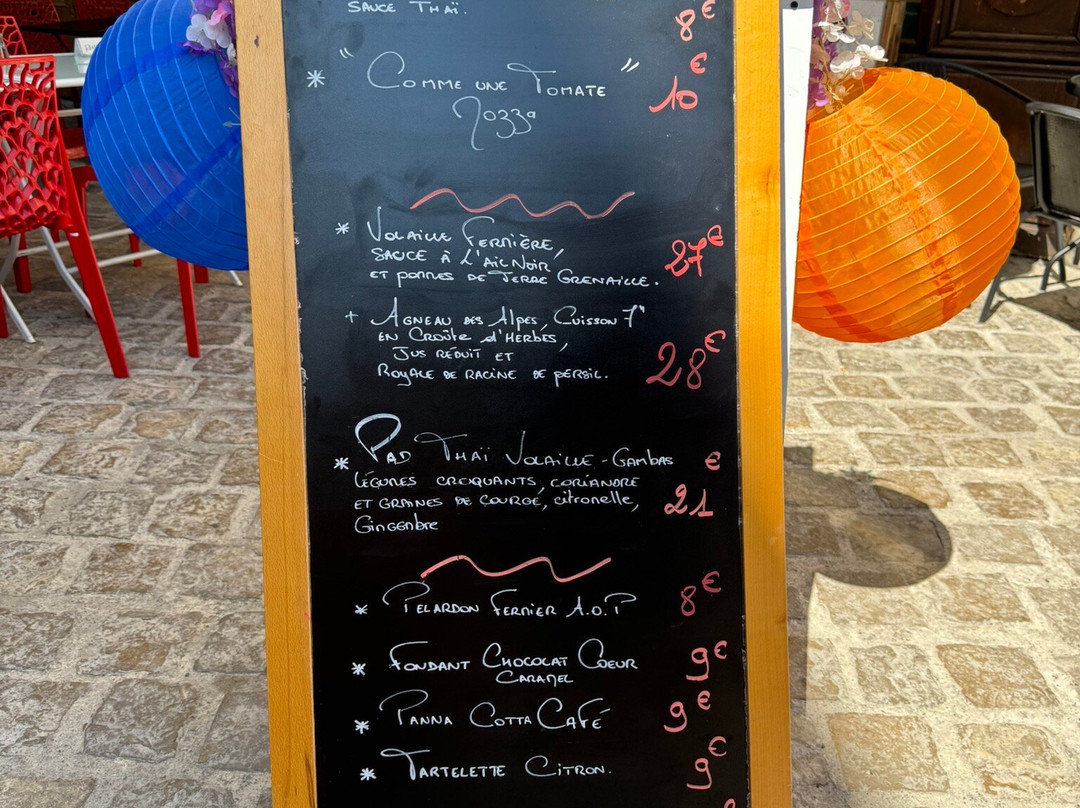 SAUCE THAÏ.
8€
* "COMME UNE TOMATE"
10€
MOZZA
* VOLAILLE FERMIÈRE,
SAUCE À L'AIL NOIR
ET POMMES DE TERRE GRENAILLE.
27€
+ AGNEAU DES ALPES, CUISSON 7H
EN CROÛTE d'HERBES,
JUS RÉDUIT ET
ROYALE DE RACINE DE PERSIL.
28€
* PAD THAÏ VOLAILLE - GAMBAS
LÉGUMES CROQUANTS, CORIANDRE
ET GRAINES DE COURGE, citronelle,
GINGEMBRE
21€
* PELARDON FERMIER A.O.P
8€
* FONDANT CHOCOLAT COEUR
CARAMEL
9€
* PANNA COTTA CAFÉ
9€
* TARTELETTE CITRON.
9€